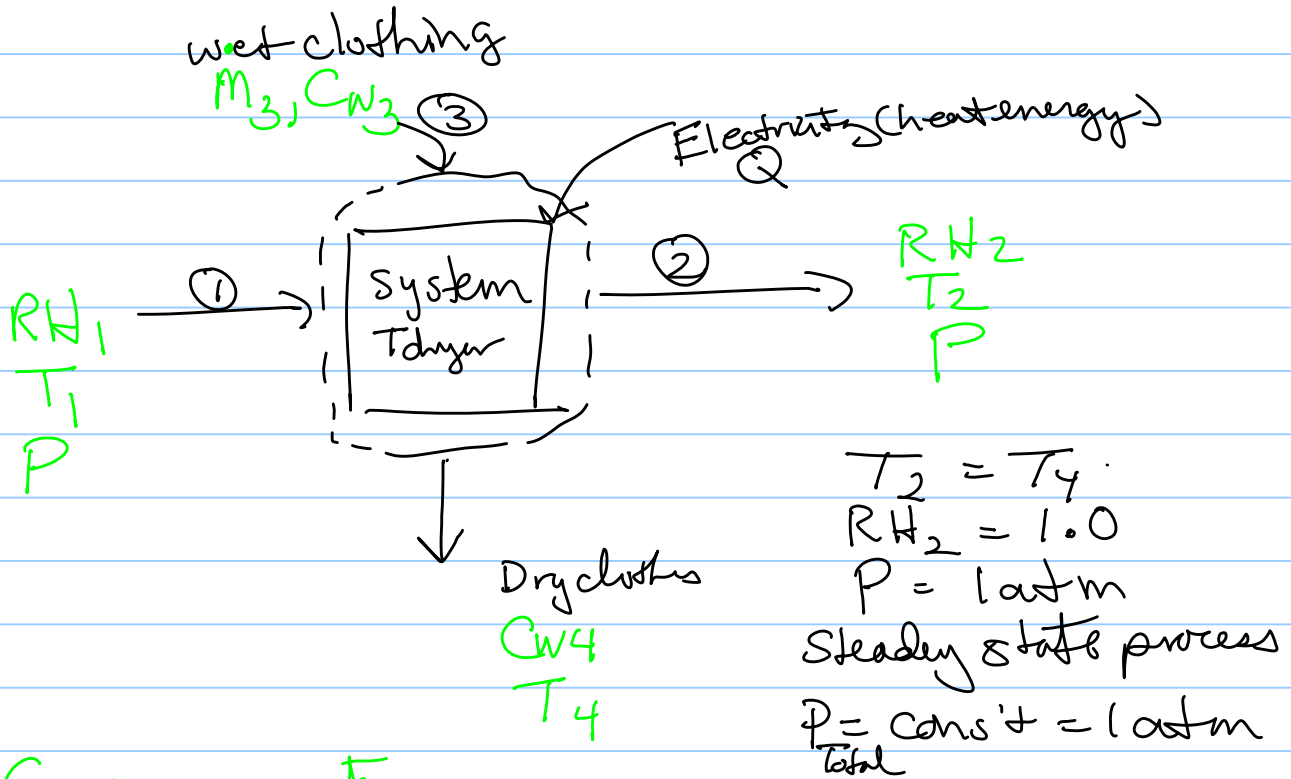 wet clothing
M3, CW3
③
Electricity (heat energy)
Q
①
RH1
T1
P
system
Tdryer
②
RH2
T2
P
T2 = T4
RH2 = 1.0
P = 1 atm
steady state process
P Total = cons't = 1 atm
Dry clothes
CW4
T4